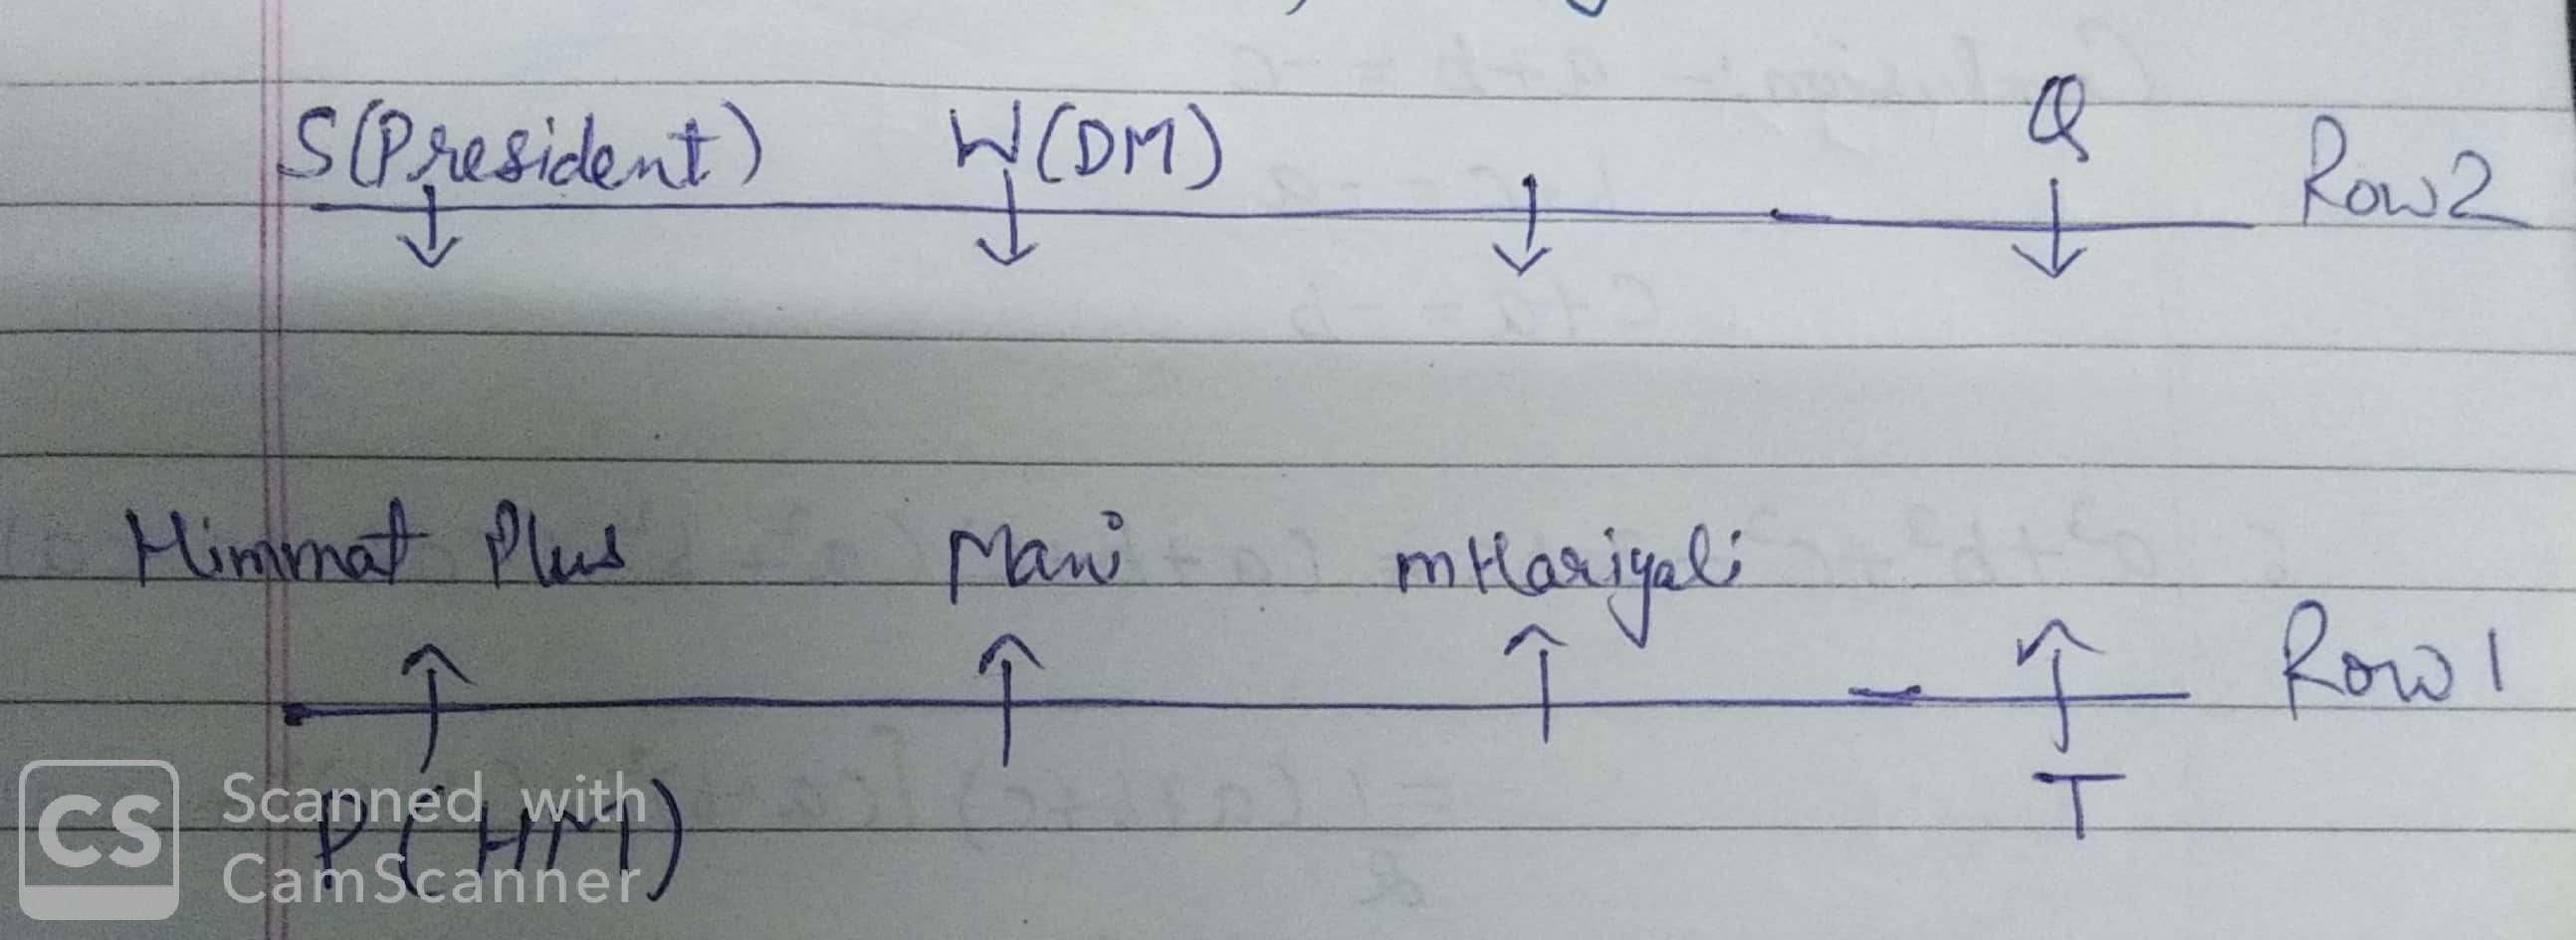 S(President) W(DM) Q
Row 2
Himmat Plus Mani mHariyali
Row 1
P(HM) T
CS Scanned with
CamScanner